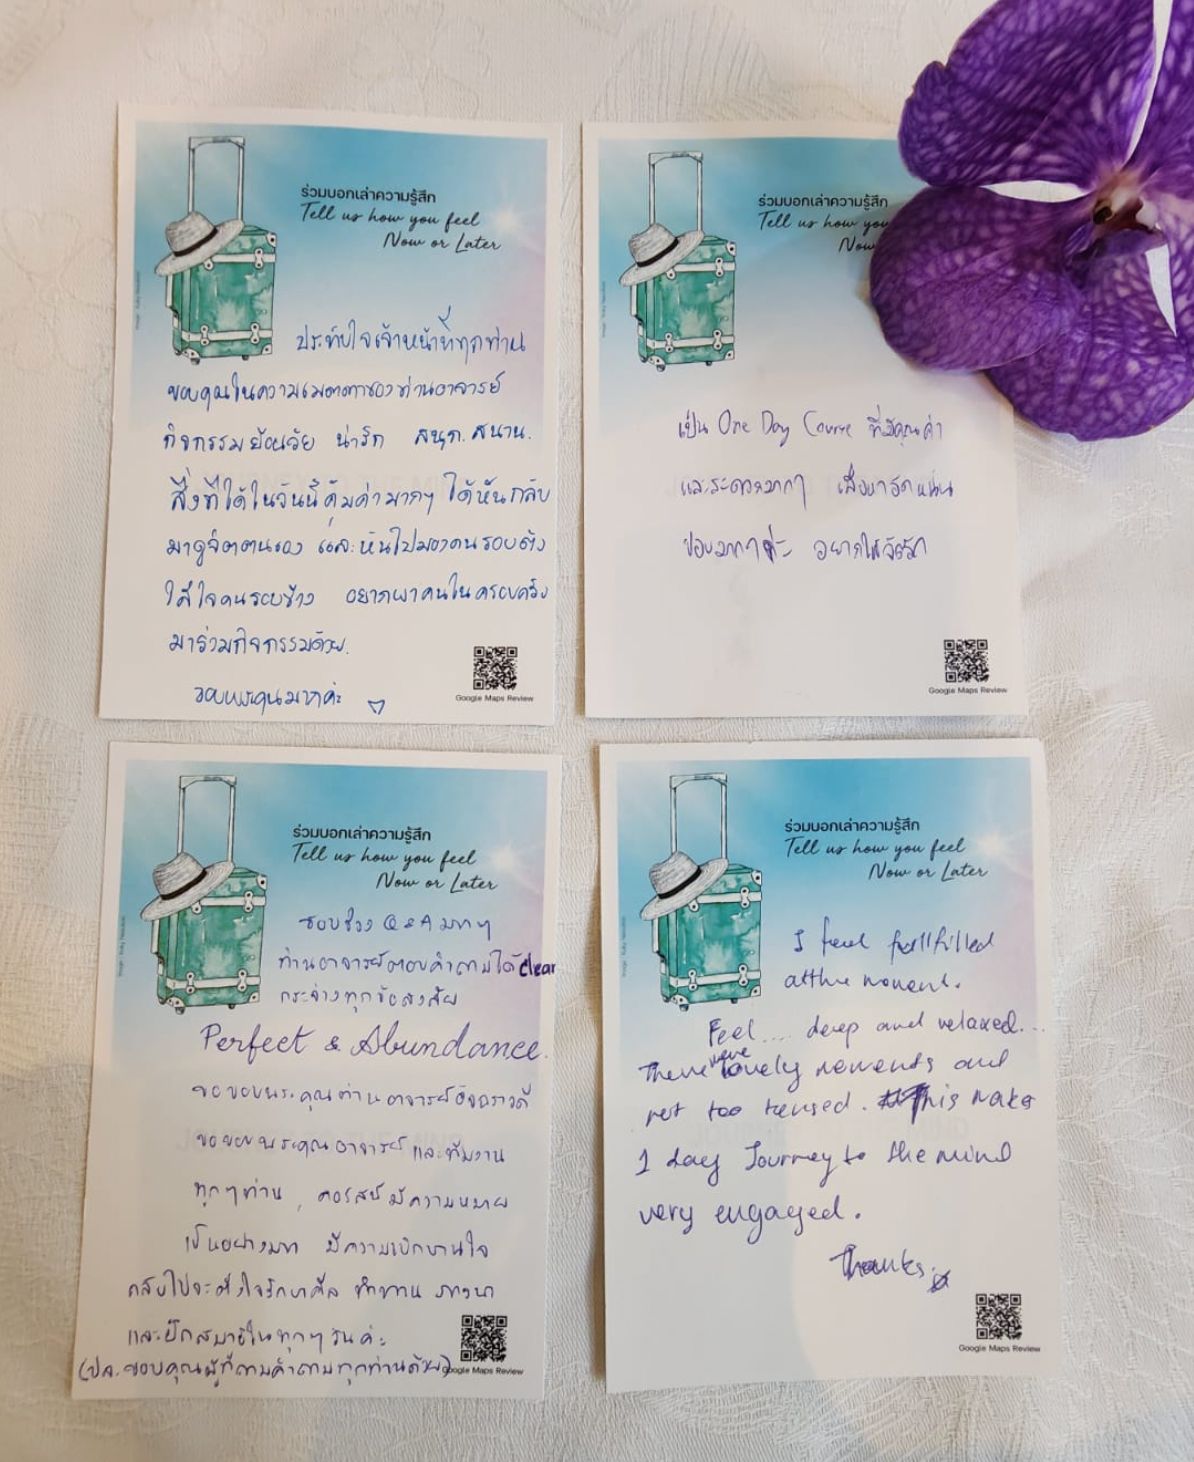 ร่วมบอกเล่าความรู้สึก
Tell us how you feel
Now or Later
ประทับใจเจ้าหน้าที่ทุกท่าน
ขอบคุณในความเมตตาของท่านอาจารย์
กิจกรรมย้อนวัย น่ารัก สนุก. สนาน.
สิ่งที่ได้ในวันนี้คุ้มค่ามากๆ ได้หันกลับ
มาดูจิตตนเอง และหันไปมองคนรอบตัว
ใส่ใจคนรอบข้าง อยากพาคนในครอบครัว
มาร่วมกิจกรรมด้วย.
ขอบพระคุณมากค่ะ
Google Maps Review
ร่วมบอกเล่าความรู้สึก
Tell us how you
Now
เป็น One Day Course ที่มีคุณค่า
และสะดวกมากๆ
ชอบมากๆค่ะ อยากให้จัดอีก
Google Maps Review
ร่วมบอกเล่าความรู้สึก
Tell us how you feel
Now or Later
ชอบช่วง Q & A มากๆ
ท่านอาจารย์ตอบคำถามได้ clear
กระจ่างทุกข้อสงสัย
Perfect & Abundance.
ขอขอบพระคุณท่านอาจารย์อัจฉราวดี
ขอขอบพระคุณอาจารย์ และทีมงาน
ทุกๆท่าน, คอร์สนี้มีความหมาย
เป็นอย่างมาก มีความเบิกบานใจ
กลับไปจะตั้งใจรักษาศีล ทำทาน ภาวนา
และฝึกสมาธิในทุกๆวันค่ะ
(ปล. ขอบคุณผู้ที่ถามคำถามทุกท่านด้วย)
Google Maps Review
ร่วมบอกเล่าความรู้สึก
Tell us how you feel
Now or Later
I feel fullfilled
at the moment.
Feel.... deep and relaxed...
There were lovely moments and
not too tensed. This make
1 day Journey to the mind
very engaged.
Thanks
Google Maps Review